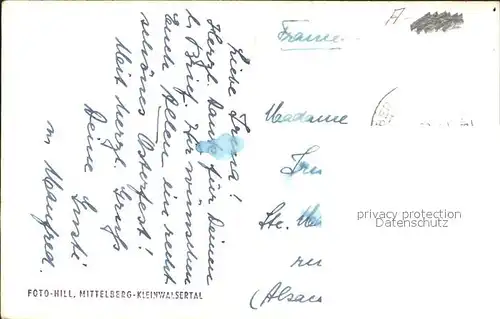 Liebe Irena!
Herzl. Dank für Deinen
lb. Brief. Wir wünschen
Euch Allen ein recht
schönes Osterfest!
Mit herzl. Gruß
Deine Gusti
m Manfred.
FOTO-HILL, MITTELBERG-KLEINWALSERTAL
France
Madame
Ste.
ru
(Alsac
privacy protection
DatenSchutz
A-